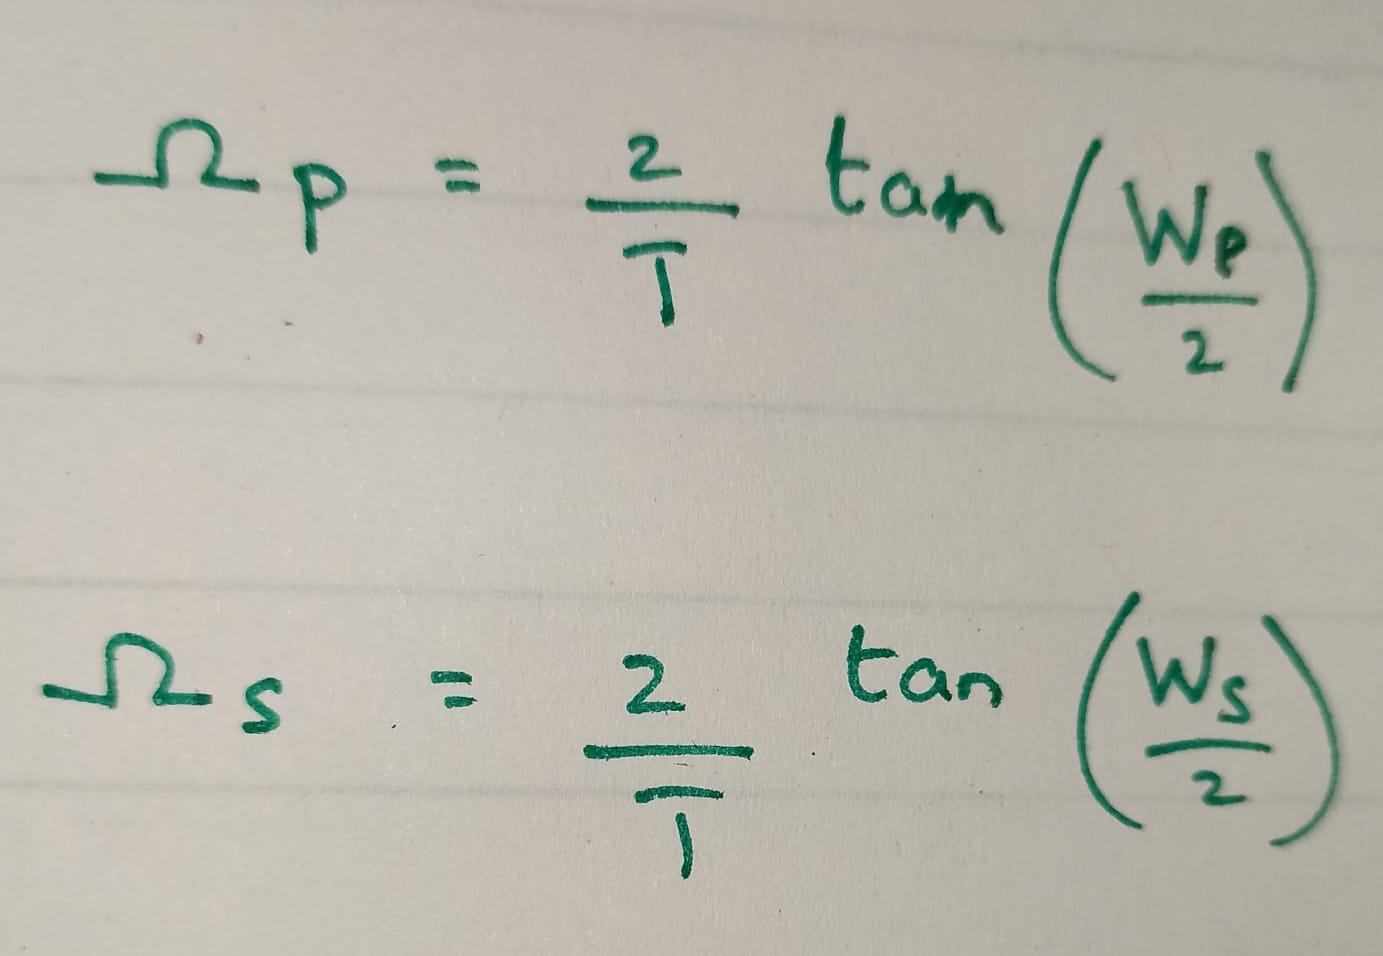 Ωp = 2/T tan (Wp/2)
Ωs = 2/T tan (Ws/2)